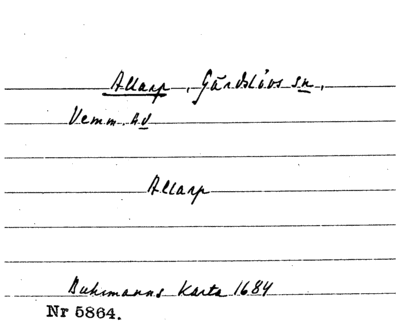 Allarp, Gärdslövs sn,
Vemm. hd
Allarp
Buhrmanns Karta 1684
Nr 5864.